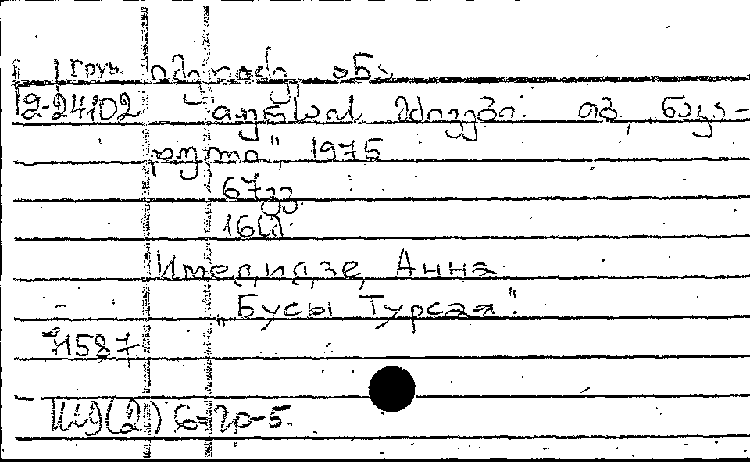 Груз. იმედიძე, ანა
2-24102 თურსას მძივები. თბ., ნაკა-
დული", 1975
67გვ.
16სმ.
Имедидзе, Анна
„Бусы Турсая".
71587
Ш9(2) 6=Гр-5.